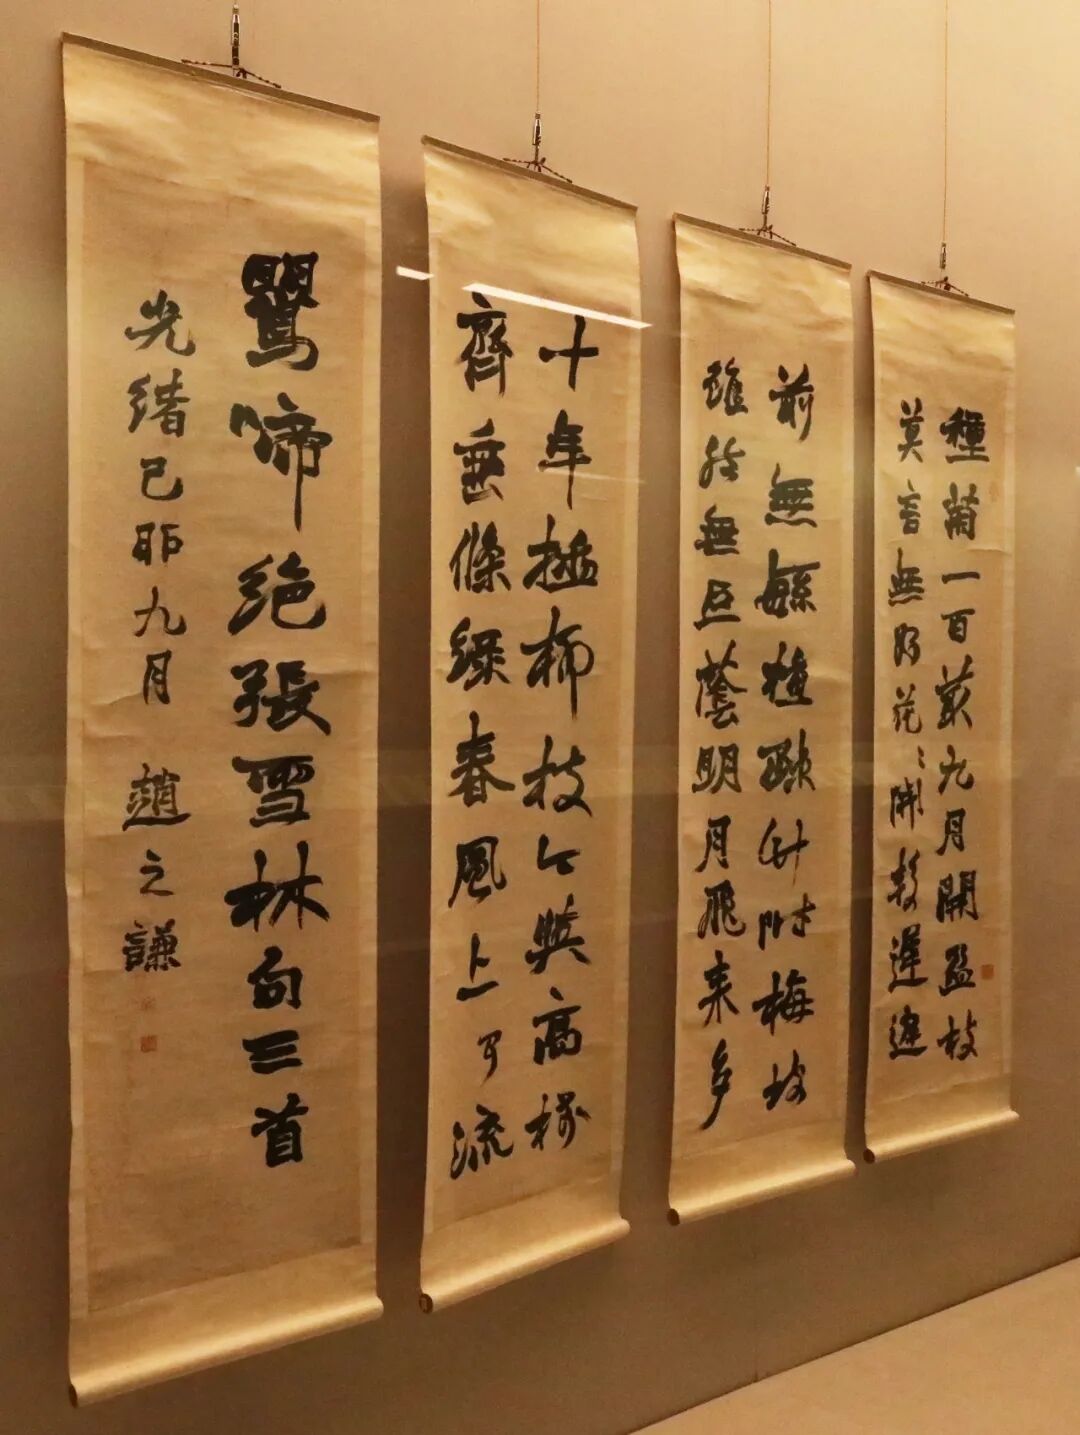 種菊一百叢九月開盈枝
莫言無花〻開較遲
前無繁植踈竹附梅坡
雖然無巨蔭明月飛來多
十年插柳枝今與高樓
齊垂條綠春風上可流
鸎啼絕張雪林句三首
光緒己卯九月 趙之謙